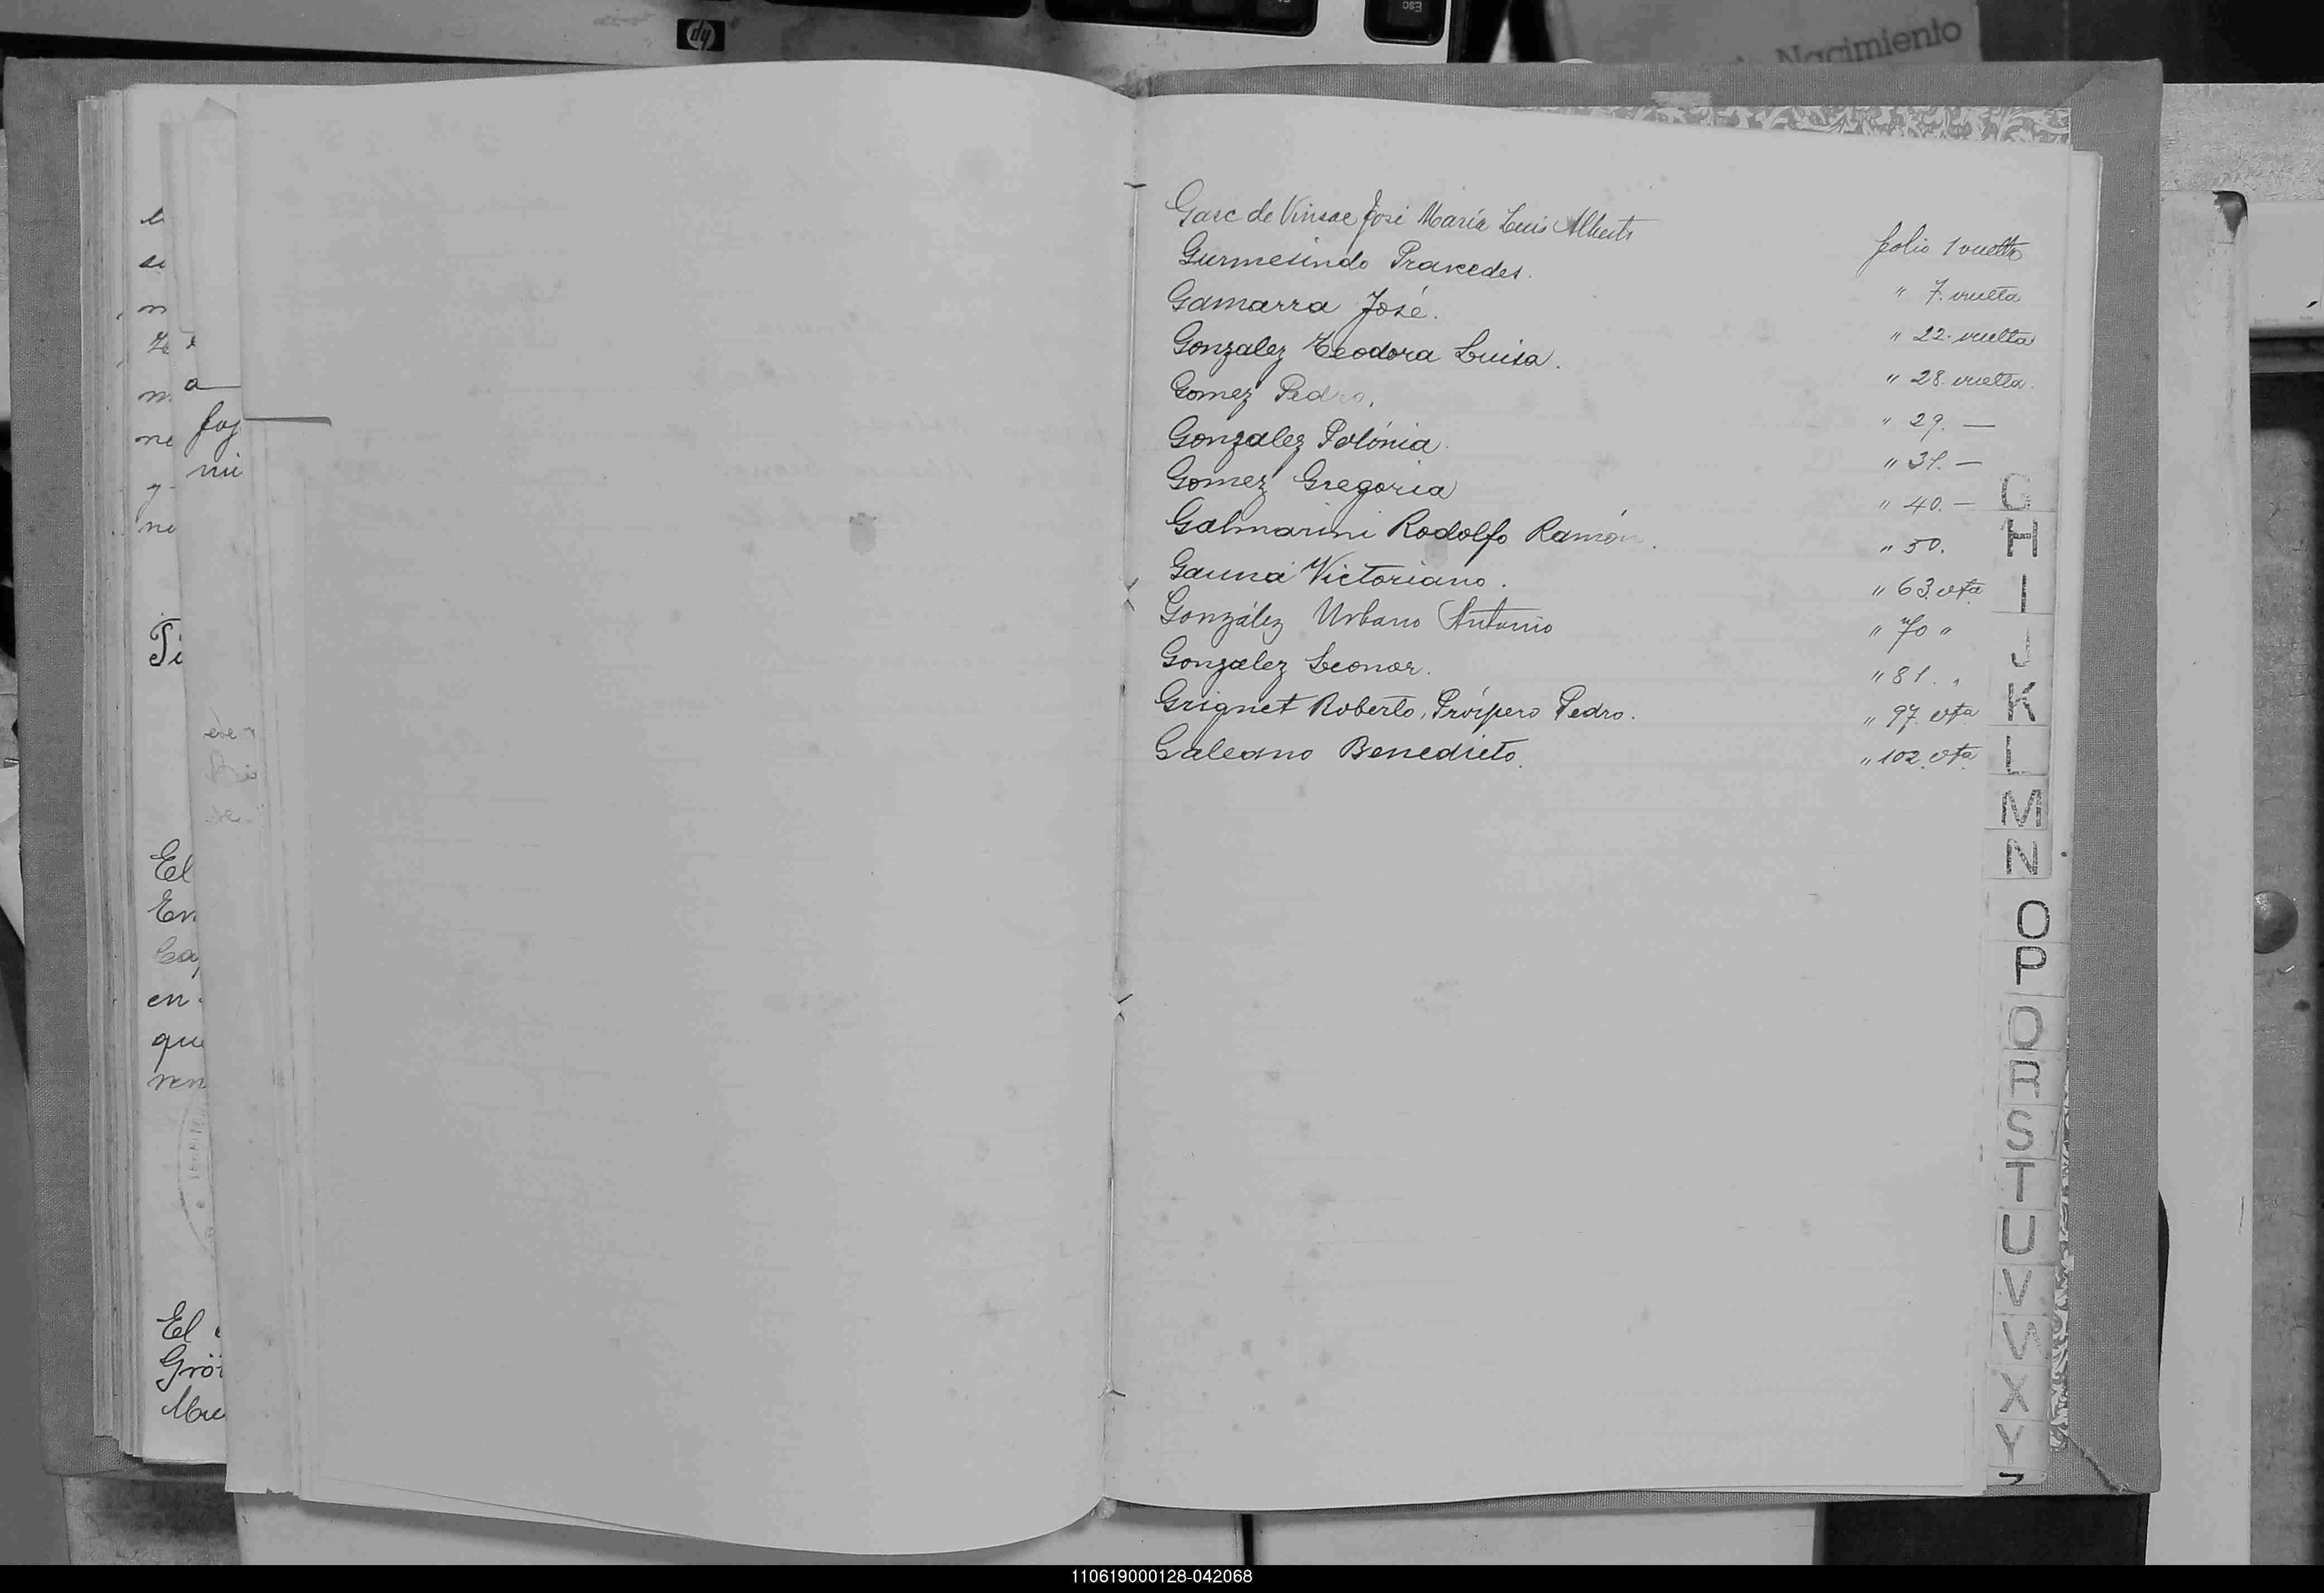 hp
ESC
Nacimiento
Garc de Vinsae José María Luis Alberto folio 1 vuelta
Gurmesindo Praxedes. " 7. vuelta
Gamarra José. " 22. vuelta
Gonzalez Teodora Luisa. " 28. vuelta.
Gomez Pedro. " 29. —
Gonzalez Polónia. " 31. —
Gomez Gregoria " 40. —
Galmarini Rodolfo Ramón. " 50.
Gauna Victoriano. " 63. vta
González Urbano Antonio " 70 "
Gonzalez Leonor. " 81. "
Grignet Roberto, Próspero Pedro. " 97. vta
Galeano Benedicto. " 102. vta
G
H
I
J
K
L
M
N
O
P
Q
R
S
T
U
V
W
X
Y
Z
a
foj
mi
El
En
en
qu
ren
El
110619000128-042068